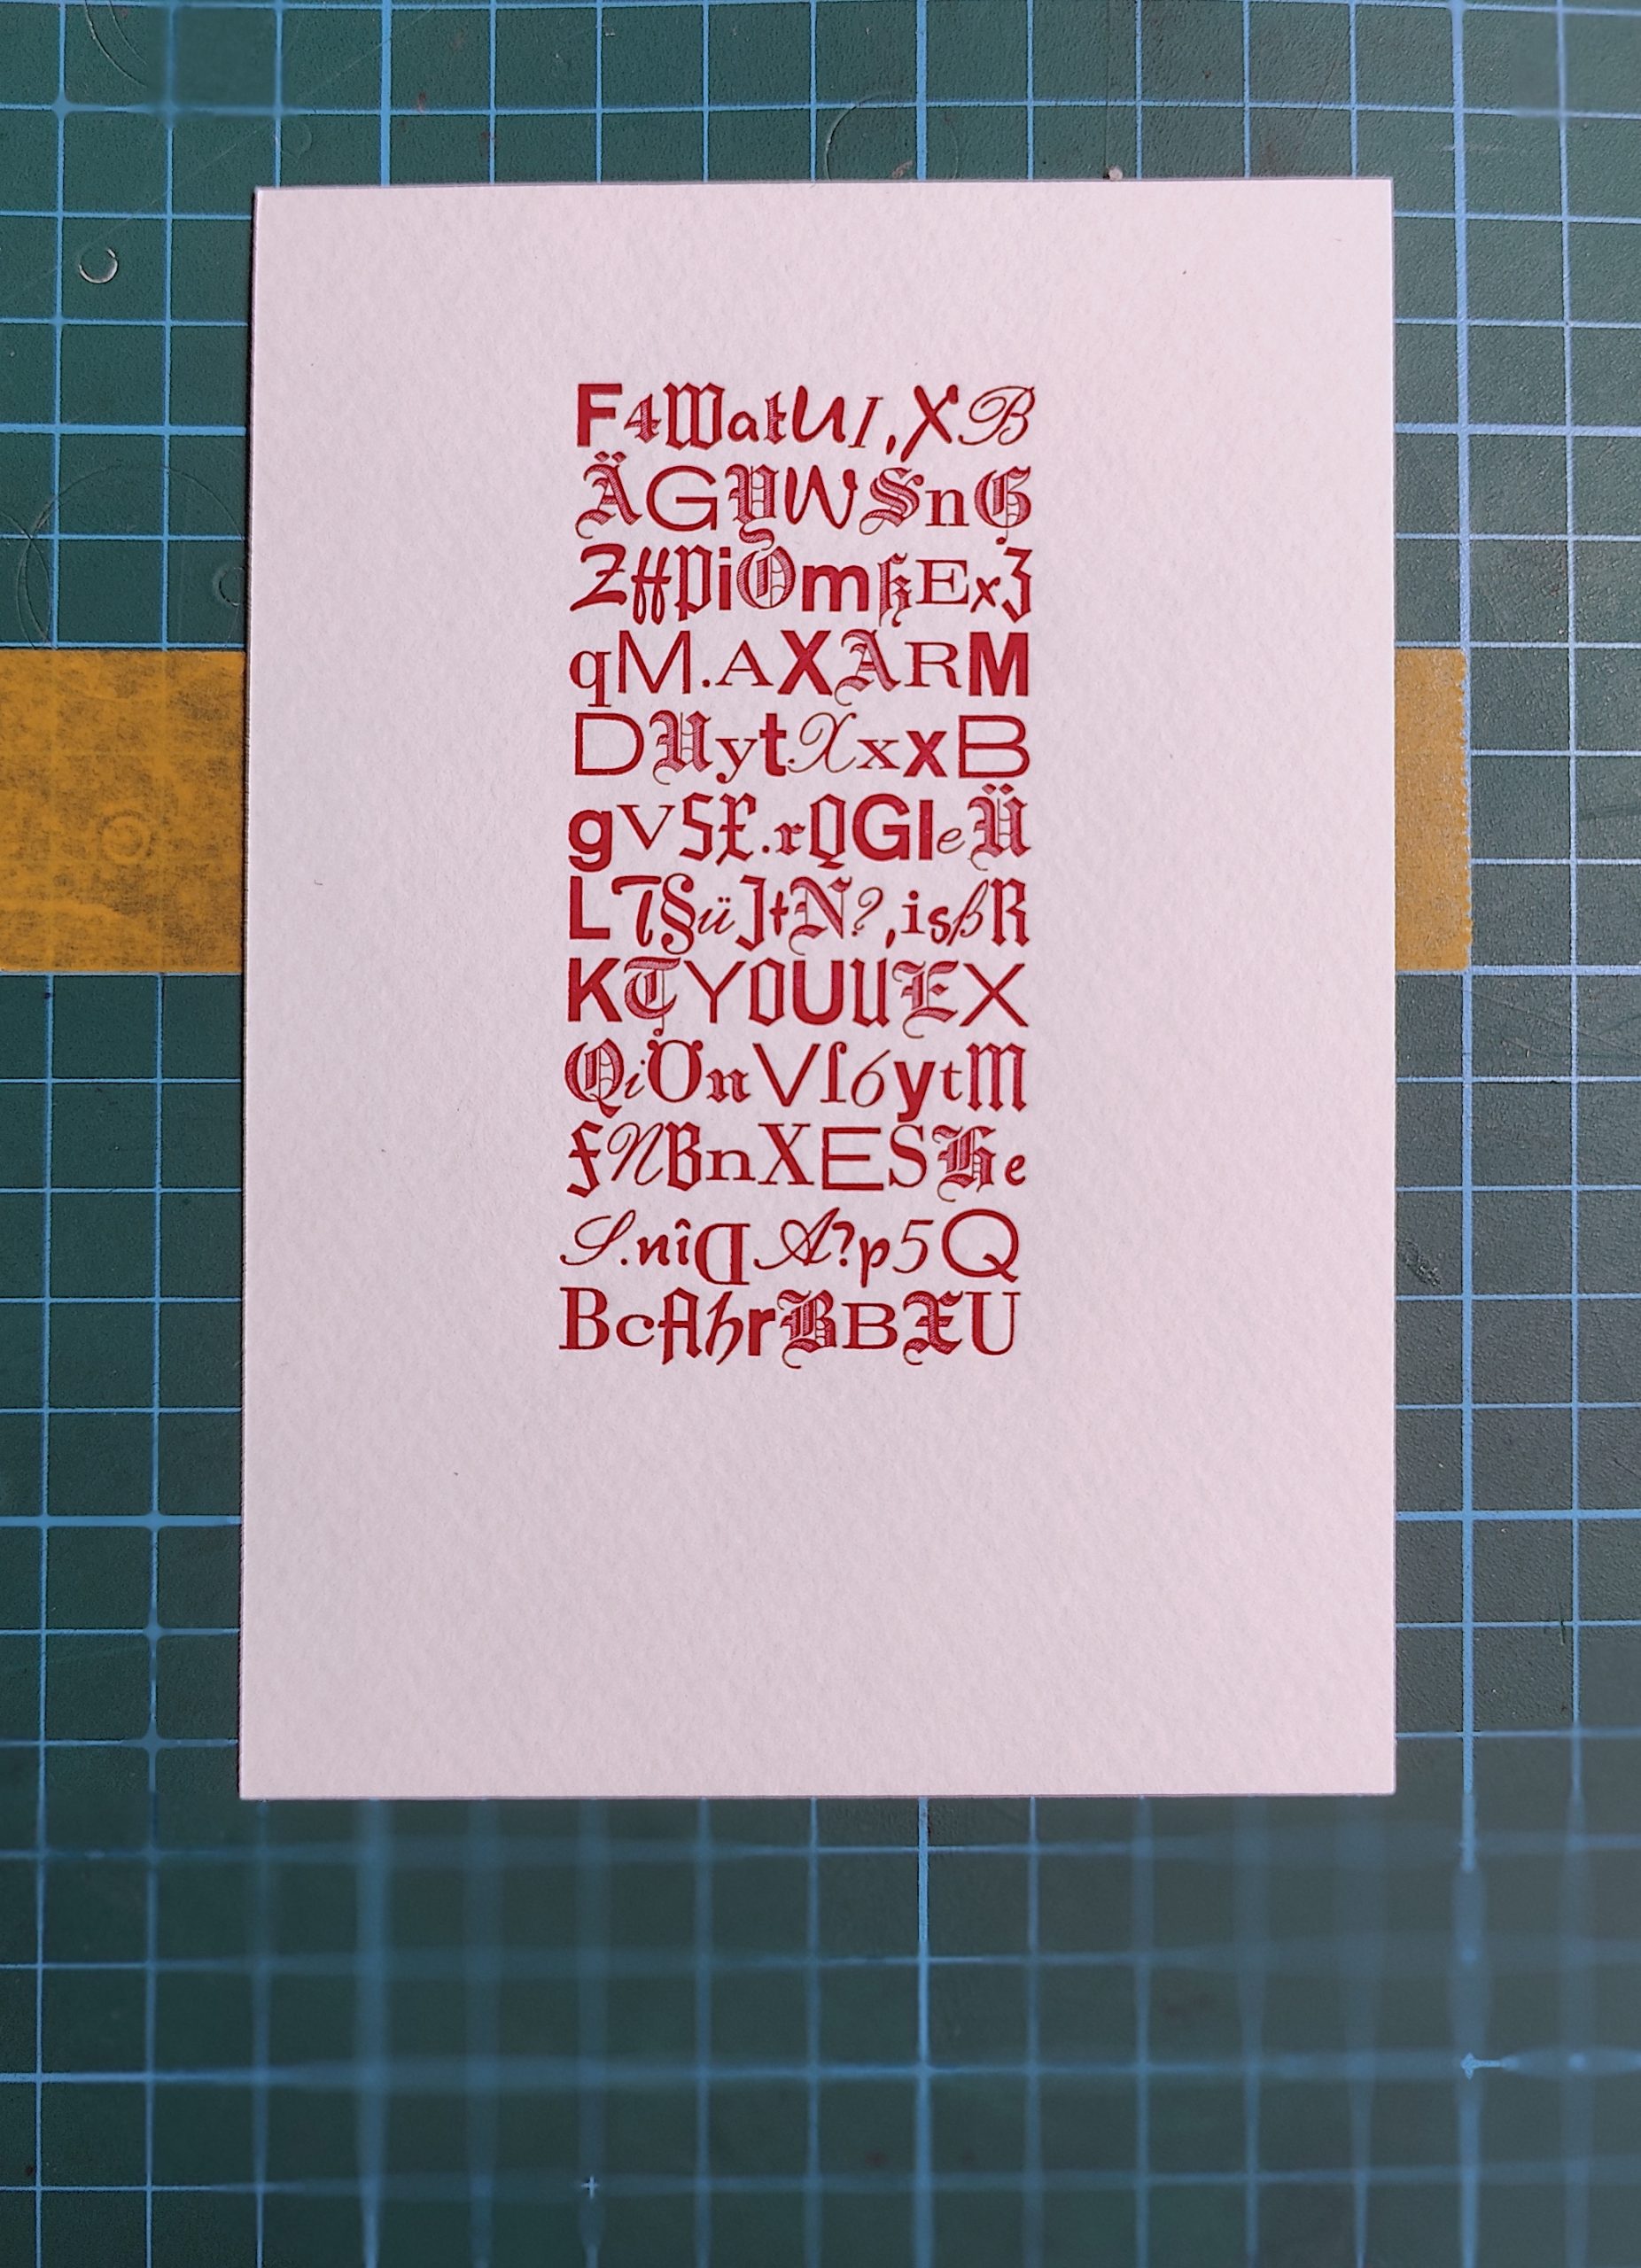 F4WatUI,XB
ÄGYWSnG
ZffPiOmkExZ
qM.AXARM
DUytXxxB
gVSX.rQGIeÜ
LT§üJtN?,isßR
KTYOUUEX
QiÖnVſ6ytM
fNBnXESHe
S.nîD A?p5Q
BcAhrBBXU